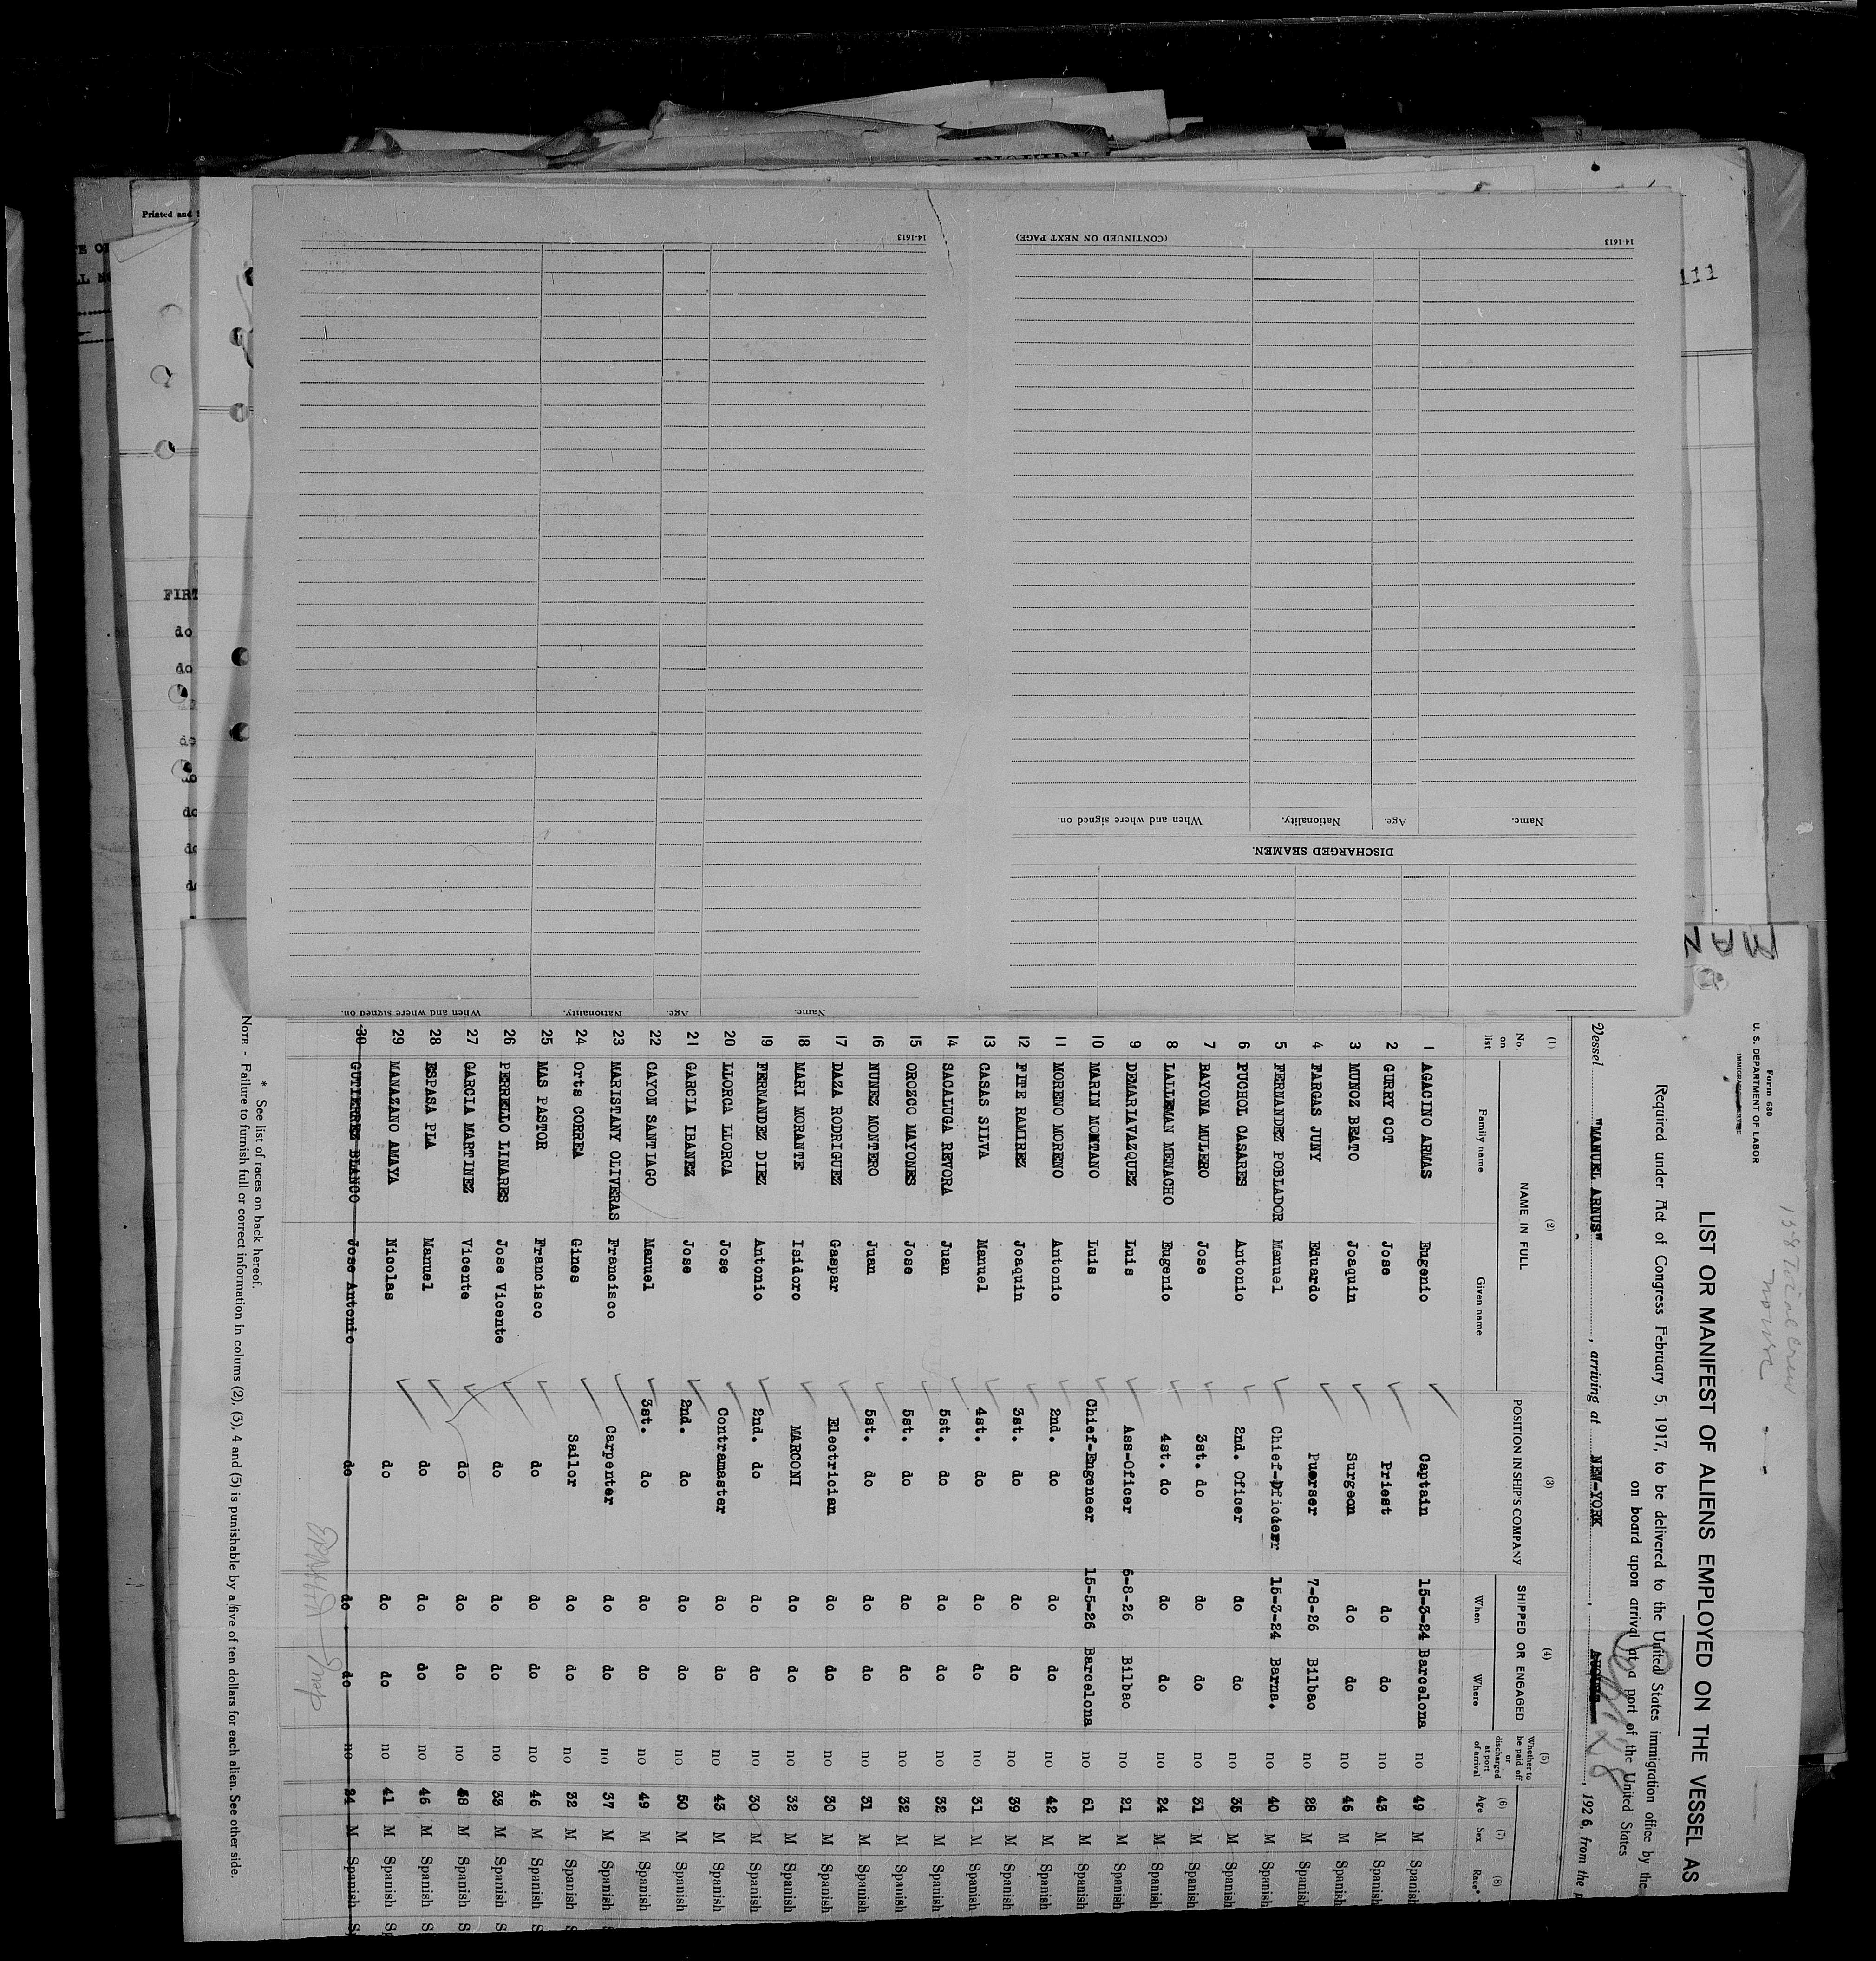 Printed and
111
FIRT
do
do
do
do
do
do
14-1613
(CONTINUED ON NEXT PAGE)
14-1613
Name.
Age.
Nationality.
When and where signed on.
DISCHARGED SEAMEN.
Name.
Age.
Nationality.
When and where signed on.
MAN
Form 680
U. S. DEPARTMENT OF LABOR
LIST OR MANIFEST OF ALIENS EMPLOYED ON THE VESSEL AS
Required under Act of Congress February 5, 1917, to be delivered to the United States immigration office by the
on board upon arrival at a port of the United States
Vessel "MANUEL ARNUS", arriving at NEW-YORK, 1926, from the p
(1) (2) (3) (4) (5) (6) (7) (8)
No. on list NAME IN FULL POSITION IN SHIP'S COMPANY SHIPPED OR ENGAGED Whether to be paid off or discharged at port of arrival Age Sex Race*
Family name Given name When Where
1 AGACINO ARMAS Eugenio Captain 15-3-24 Barcelona no 49 M Spanish
2 GURRY COT Jose Priest do do no 43 M Spanish
3 MUNOZ BEATO Joaquin Surgeon do do no 46 M Spanish
4 FARGAS JUNY Eduardo Puerser 7-8-26 Bilbao no 28 M Spanish
5 FERNANDEZ POBLADOR Manuel Chief-Oficderr 15-3-24 Barna. no 40 M Spanish
6 PUCHOL CASARES Antonio 2nd. Oficer do do no 35 M Spanish
7 BAYONA MULERO Jose 3st. do do do no 31 M Spanish
8 LALLEMAN MENACHO Eugenio 4st. do do do no 24 M Spanish
9 DEMARIAVAZQUEZ Luis Ass-Oficer 6-8-26 Bilbao no 21 M Spanish
10 MARIN MONTANO Luis Chief-Engeneer 15-5-26 Barcelona no 61 M Spanish
11 MORENO MORENO Antonio 2nd. do do do no 42 M Spanish
12 PITE RAMIREZ Joaquin 3st. do do do no 39 M Spanish
13 CASAS SILVA Manuel 4st. do do do no 31 M Spanish
14 SACALUGA REVORA Juan 5st. do do do no 32 M Spanish
15 OROZCO MAYONES Jose 5st. do do do no 32 M Spanish
16 NUNEZ MONTERO Juan 5st. do do do no 31 M Spanish
17 DAZA RODRIGUEZ Gaspar Electrician do do no 30 M Spanish
18 MARI MORANTE Isidoro MARCONI do do no 32 M Spanish
19 FERNANDEZ DIEZ Antonio 2nd. do do do no 30 M Spanish
20 LLORCA LLORCA Jose Contramaster do do no 43 M Spanish
21 GARCIA IBANEZ Jose 2nd. do do do no 50 M Spanish
22 CAYON SANTIAGO Manuel 3st. do do do no 49 M Spanish
23 MARISTANY OLIVERAS Francisco Carpenter do do no 37 M Spanish
24 Orts CORREA Gines Sailor do do no 32 M Spanish
25 MAS PASTOR Francisco do do do no 46 M Spanish
26 PERRELLO LINARES Jose Vicente do do do no 33 M Spanish
27 GARCIA MARTINEZ Vicente do do do no 48 M Spanish
28 ESPASA PLA Manuel do do do no 46 M Spanish
29 MANAZANO AMAYA Nicolas do do do no 41 M Spanish
30 GUTIERREZ BLANCO Jose Antonio do do do no 24 M Spanish
* See list of races on back hereof.
NOTE - Failure to furnish full or correct information in colums (2), (3), 4 and (5) is punishable by a five of ten dollars for each alien. See other side.